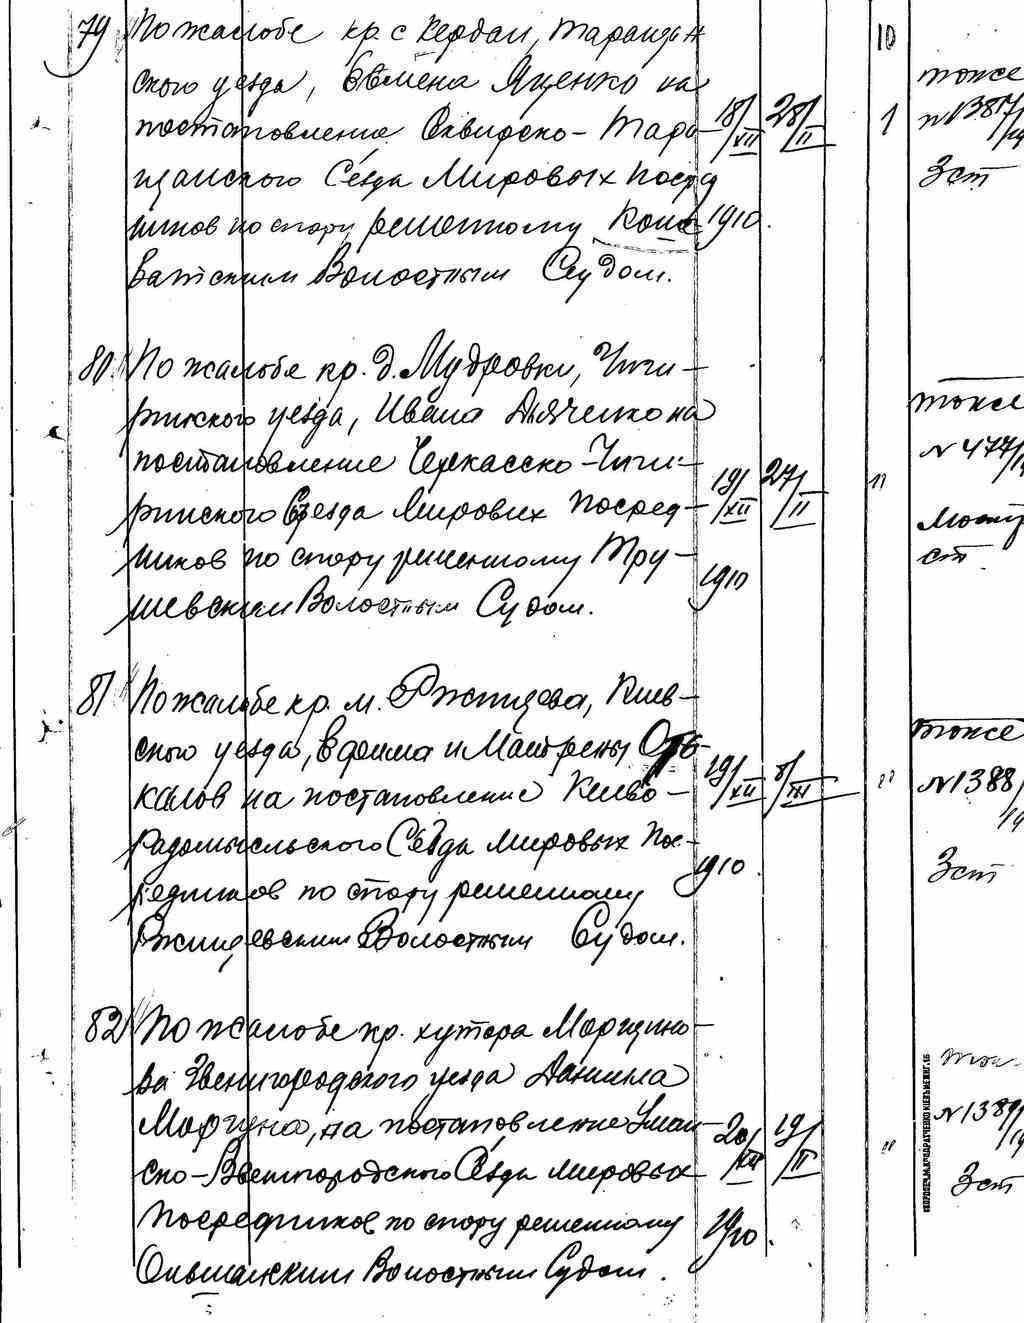 79 По жалобе кр. с Кердан, Таращан
ского уезда, Евмена Яценко на
постановление Сквирско-Тара-
щанского Съезда Мировых Посред
ников по спору решенному Коше
ватским Волостным Судом.
18/XII 28/II
1910.
10
1
тоже
№1387/
3 ст
80. По жалобе кр. д. Мудровки, Чиги-
ринского уезда, Ивана Дьяченко на
постановление Черкасско-Чиги-
ринского Съезда Мировых Посред-
ников по спору решенному Тру-
шевским Волостным Судом.
19/XII 27/II
1910
"
тоже
№ 477/
ст
81 По жалобе кр. м. Ржищева, Киев-
ского уезда, Ефима и Матрены
калов на постановление Киево-
Радомысльского Съезда Мировых Пос-
редников по спору решенному
Ржищевским Волостным Судом.
19/XII 8/III
1910.
"
тоже
№1388/
3 ст
82 По жалобе кр. хутора Моргуно-
ва Звенигородского уезда Даниила
Моргуна, на постановление Уман-
ско-Звенигородского Съезда мировых
Посредников по спору решенному
Ольшанским Волостным Судом.
20/XII 19/II
1910.
"
тоже
№1389/
3 ст